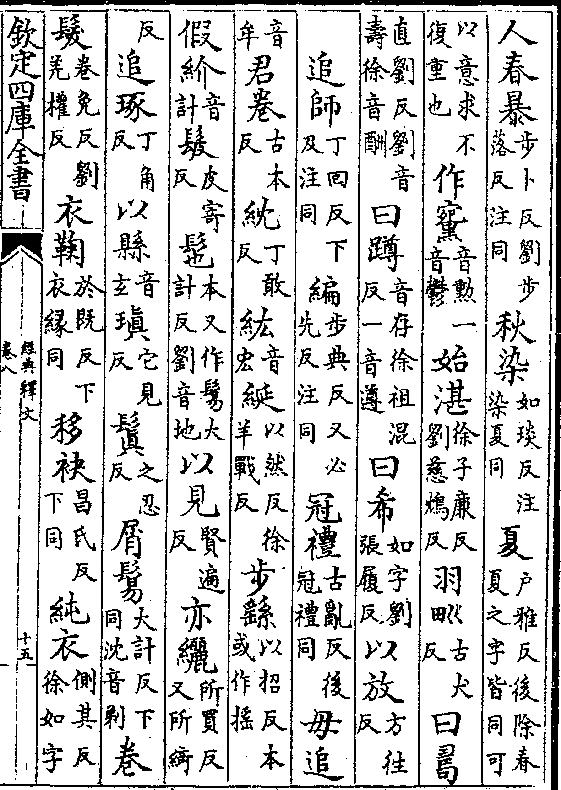 人春暴步卜反劉步落反注同秋染如琰反注染夏同夏戶雅反後除春夏之字皆同可
以意求不復重也作䵫音勳一音鬱始湛徐子廉反劉慈鴆反羽𤰕古犬反曰
直劉反劉音壽徐音酬曰蹲音存徐祖混反一音遵曰希如字劉張履反以放方往反
追師丁回反下及注同編步典反又必先反注同冠禮古亂反後冠禮同毋追
音牟君卷古本反紞丁敢反紘音宏綖以然反徐羊戰反步繇以招反本或作搖
假紒音計髲皮寄反髢本又作鬄大計反劉音地以見賢遍反亦纚所買反又所綺
反追琢丁角反以縣音玄瑱它見反鬒之忍反屑鬄大計反下同沈音剃卷
髮卷免反劉羌權反衣鞠於既反下衣緣同移袂昌氏反下同純衣側其反徐如字
欽定四庫全書
經典釋文
卷八
十五